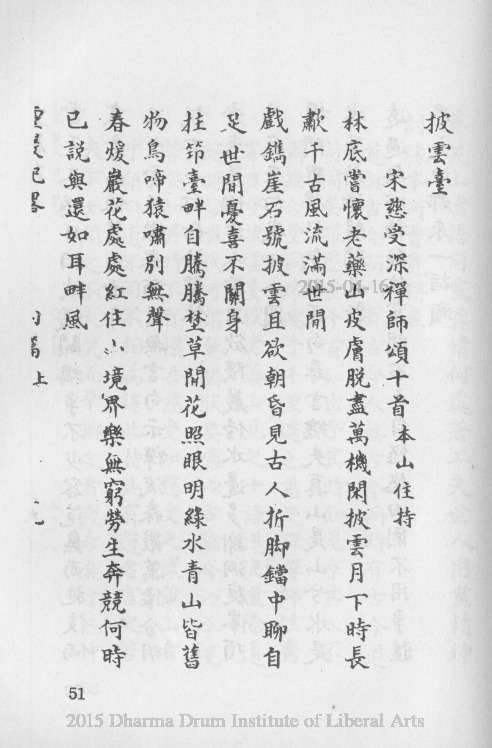 披雲臺
宋慈受深禪師頌十首本山住持
林底嘗懷老藥山皮膚脫盡萬機閑披雲月下時長
歗千古風流滿世間
戲鐫崖石號披雲且欲朝昏見古人折脚鐺中聊自
足世間憂喜不關身
拄笻臺畔自騰騰埜草閒花照眼明綠水青山皆舊
物鳥啼猿嘯別無聲
春煖巖花處處紅住山境界樂無窮勞生奔競何時
已説與還如耳畔風
上
51
2015-04-16
2015 Dharma Drum Institute of Liberal Arts